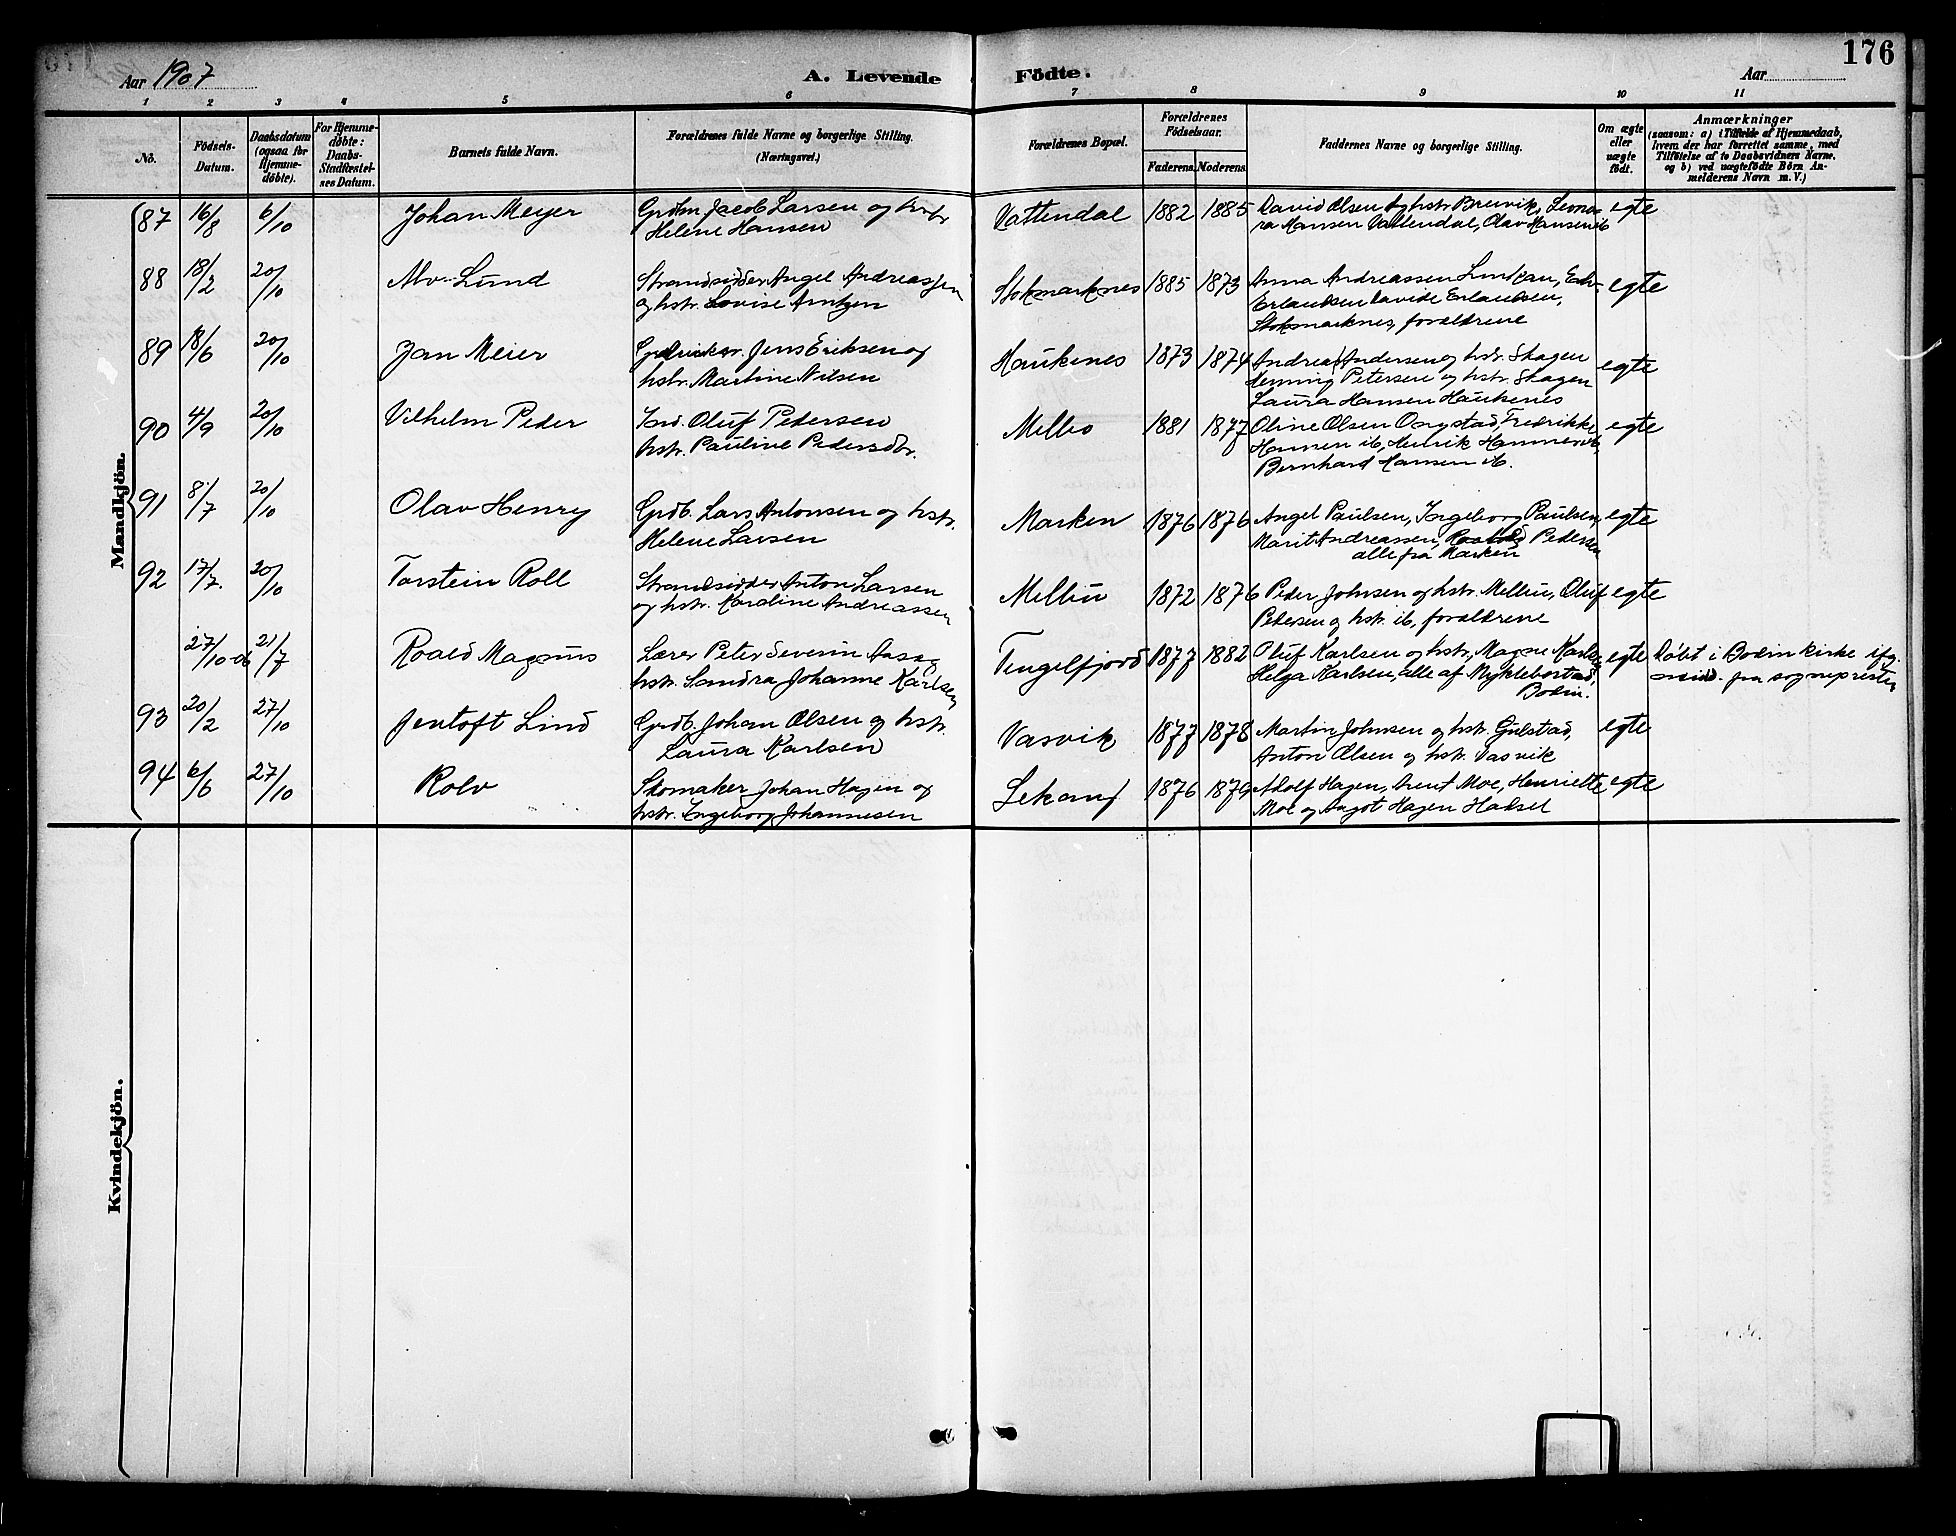 176
Aar 1907
A. Levende
Födte.
Aar
1 2 3 4 5 6 7 8 9 10 11
No.
Födsels-
Datum.
Daabsdatum
(ogsaa for
Hjemme-
döbte).
For Hjemme-
döbte:
Daabs-
Stadfæstel-
ses Datum.
Barnets fulde Navn.
Forældrenes fulde Navne og borgerlige Stilling.
(Næringsvei.)
Forældrenes Bopæl.
Forældrenes
Födselsaar.
Faderens. Moderens.
Faddernes Navne og borgerlige Stilling.
Om ægte
eller
uægte
födt.
Anmærkninger
(saasom: a) i Tilfælde af Hjemmedaab,
hvem der har forrettet samme, med
Tilföielse af to Daabsvidners Navne,
og b) ved uægtefödte Börn An-
melderens Navn m. V.)
Mandkjön.
87 16/8 6/10 Johan Meyer
Jacob Larsen og
Helene Hansen
Vattendal 1882 1885
David Olsen og hstr. Breivik, Leono-
ra Hansen Vattendal, Olav Hansen ib
egte
88 18/2 20/10 Alv Lund
Strandsidder Angel Andreassen
og hstr. Lovise Arntzen
Stokmarknes 1885 1873
Anna Andreassen
Erlandsen Erlandsen,
Stokmarknes, forældrene
egte
89 18/6 20/10 Jan Meier
Jens Eriksen og
hstr. Martine Nilsen
Haukenes 1873 1874
Andreas Andersen og hstr. Skagen
Henning Petersen og hstr. Skagen
Laura Hansen Haukenes
egte
90 4/9 20/10 Vilhelm Peder
Ind. Oluf Pedersen
hstr. Pauline Pedersdtr.
Melbo 1881 1877
Oline Olsen Ongstad, Fredrikke
Hansen ib, Henrik Hammer ib,
Bernhard Hansen ib.
egte
91 8/7 20/10 Olav Henry
Grdb. Lars Antonsen og hstr.
Helene Larsen
Marken 1876 1876
Angel Paulsen, Ingeborg Paulsen,
Marit Andreassen, Pedersen
alle fra Marken
egte
92 17/7. 20/10 Torstein Roll
Strandsidder Anton Larsen
og hstr. Karoline Andreassen
Melbu 1872 1876
Peder Johnsen og hstr. Melbu, Oluf
Petersen og hstr. ib, forældrene
egte
27/10-06 21/7 Roald Magnus
Lærer Peter Severin Aas og
hstr. Sandra Johanne Karlsen
Tengelfjord 1877 1882
Oluf Karlsen og hstr, Magne Karlsen
Helga Karlsen, alle af Myklebostad,
Bodin.
egte
Döbt i Bodin kirke ifg.
medd. fra sognepresten
93 20/2 27/10 Jentoft Lind
Grdb. Johan Olsen og hstr.
Laura Karlsen
Vasvik 1877 1878
Martin Johnsen og hstr. Gulstad,
Anton Olsen og hstr. Vasvik
egte
94 6/6 27/10 Rolv
Skomaker Johan Hagen og
hstr. Ingeborg Johannesen
Lekang 1876 1879
Adolf Hagen, Arent Moe, Henriette
Moe og Angot Hagen Hadsel
egte
Kvindekjön.